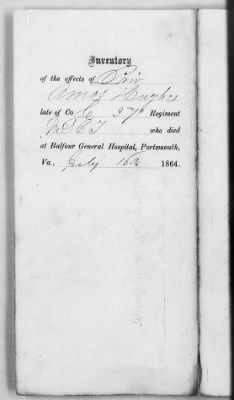 Inventory
of the effects of Priv
Amos Hughes
late of Co 37th Regiment
who died
at Balfour General Hospital, Portsmouth,
Va., July 16th 1864.